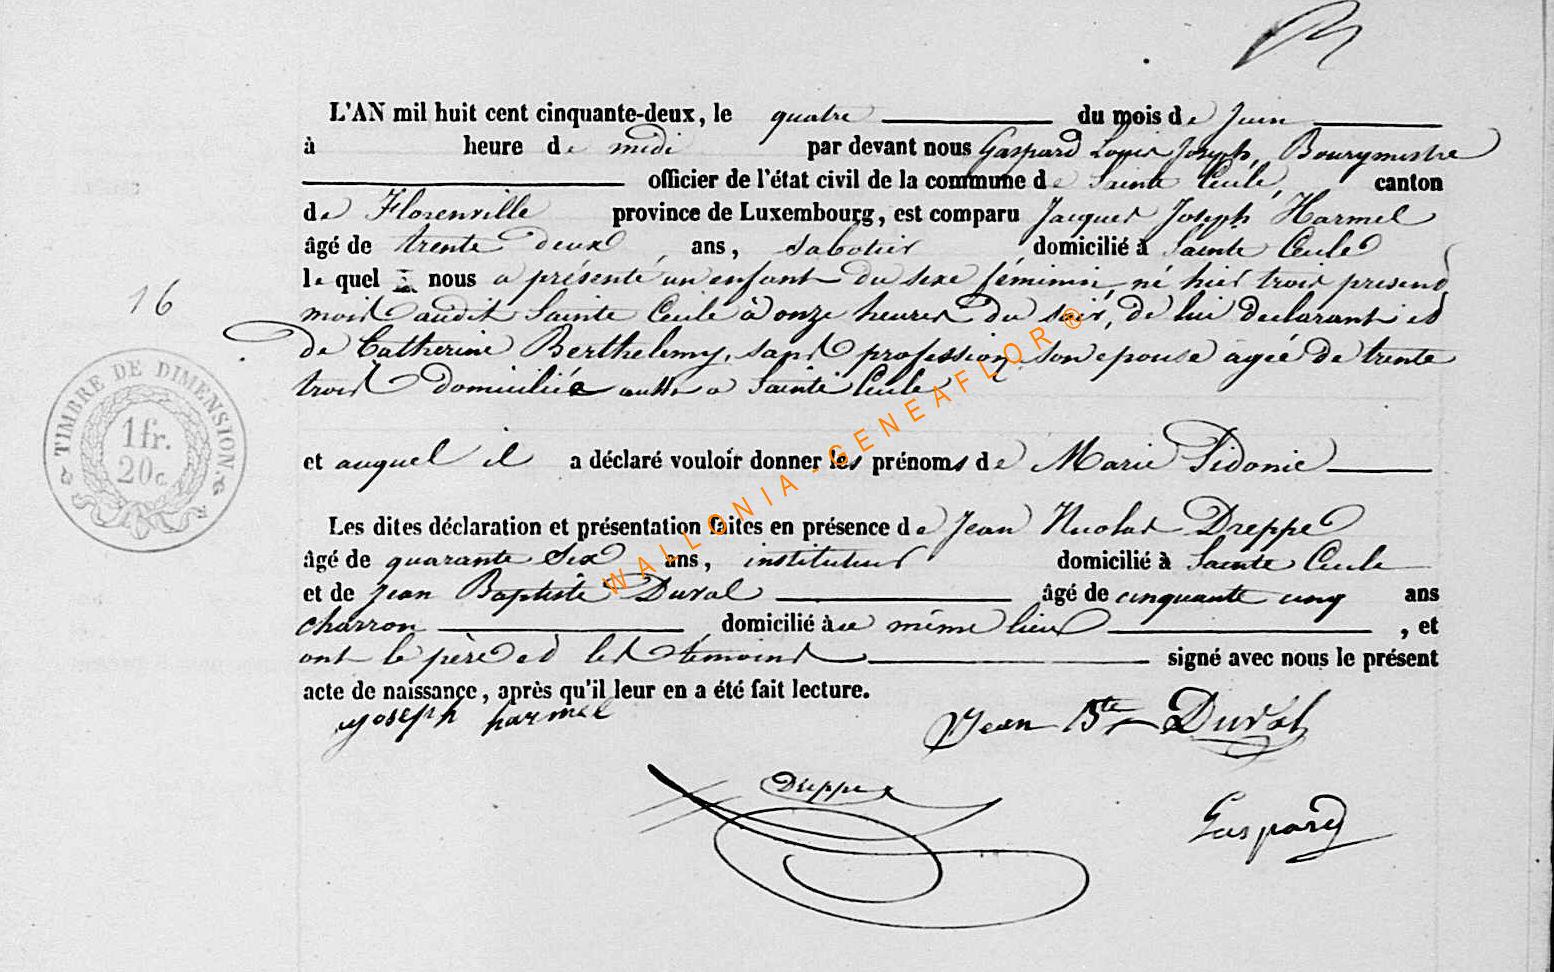 L'AN mil huit cent cinquante-deux, le quatre du mois de Juin
à heure de midi par devant nous Gaspard Louis Joseph, Bourgmestre
officier de l'état civil de la commune de Sainte Cécile, canton
de Florenville province de Luxembourg, est comparu Jacques Joseph Harmel
âgé de trente deux ans, sabotier domicilié à Sainte Cecile
le quel nous a présenté un enfant du sexe féminin, né hier trois present
mois audit Sainte Cecile à onze heures du soir, de lui declarant et
de Catherine Berthelemy, sans profession son epouse agée de trente
trois domiciliée aussi a Sainte Cecile
16
TIMBRE DE DIMENSION
1 fr.
20 c.
et auquel il a déclaré vouloir donner les prénoms de Marie Sidonie
Les dites déclaration et présentation faites en présence de Jean Nicolas Dreppe
âgé de quarante six ans, instituteur domicilié à Sainte Cecile
et de Jean Baptiste Duval âgé de cinquante cinq ans
charron domicilié à ce même lieu, et
ont le père et les témoins signé avec nous le présent
acte de naissance, après qu'il leur en a été fait lecture.
joseph harmel
Jean Bte Duval
Dreppe
Gaspard
WALLONIA - GENEAFLOR ®